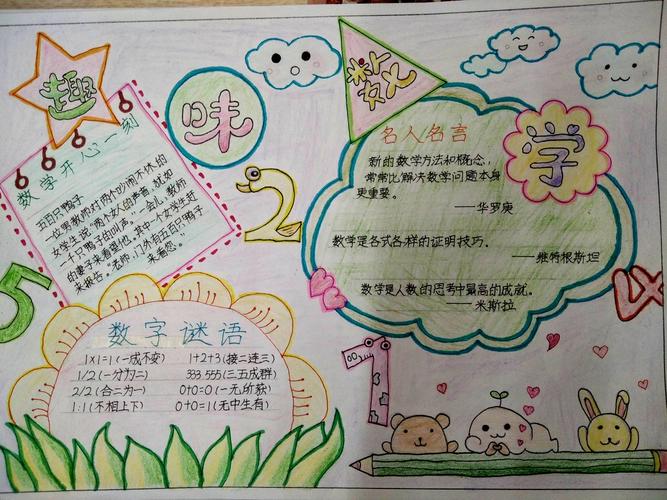 趣
味
数
学
数学开心一刻
五百只鸭子
一位男教师对两个吵闹不休的
女学生说:“两个女人的声音,就如
千只鸭子的叫声。”一会儿,教师
的妻子来看望他。其中一个女学生赶
来报告:“老师,门外有五百只鸭子
来看您。”
2
5
名人名言
新的数学方法和概念,
常常比解决数学问题本身
更重要。
——华罗庚
数学是各式各样的证明技巧.
——维特根斯坦
数学是人数的思考中最高的成就。
——米斯拉
4
7
数字谜语
1×1=1(一成不变) 1+2+3(接二连三)
1/2(一分为二) 333.555(三五成群)
2/2(合二为一) 0+0=0(一无所获)
1:1(不相上下) 0+0=1(无中生有)